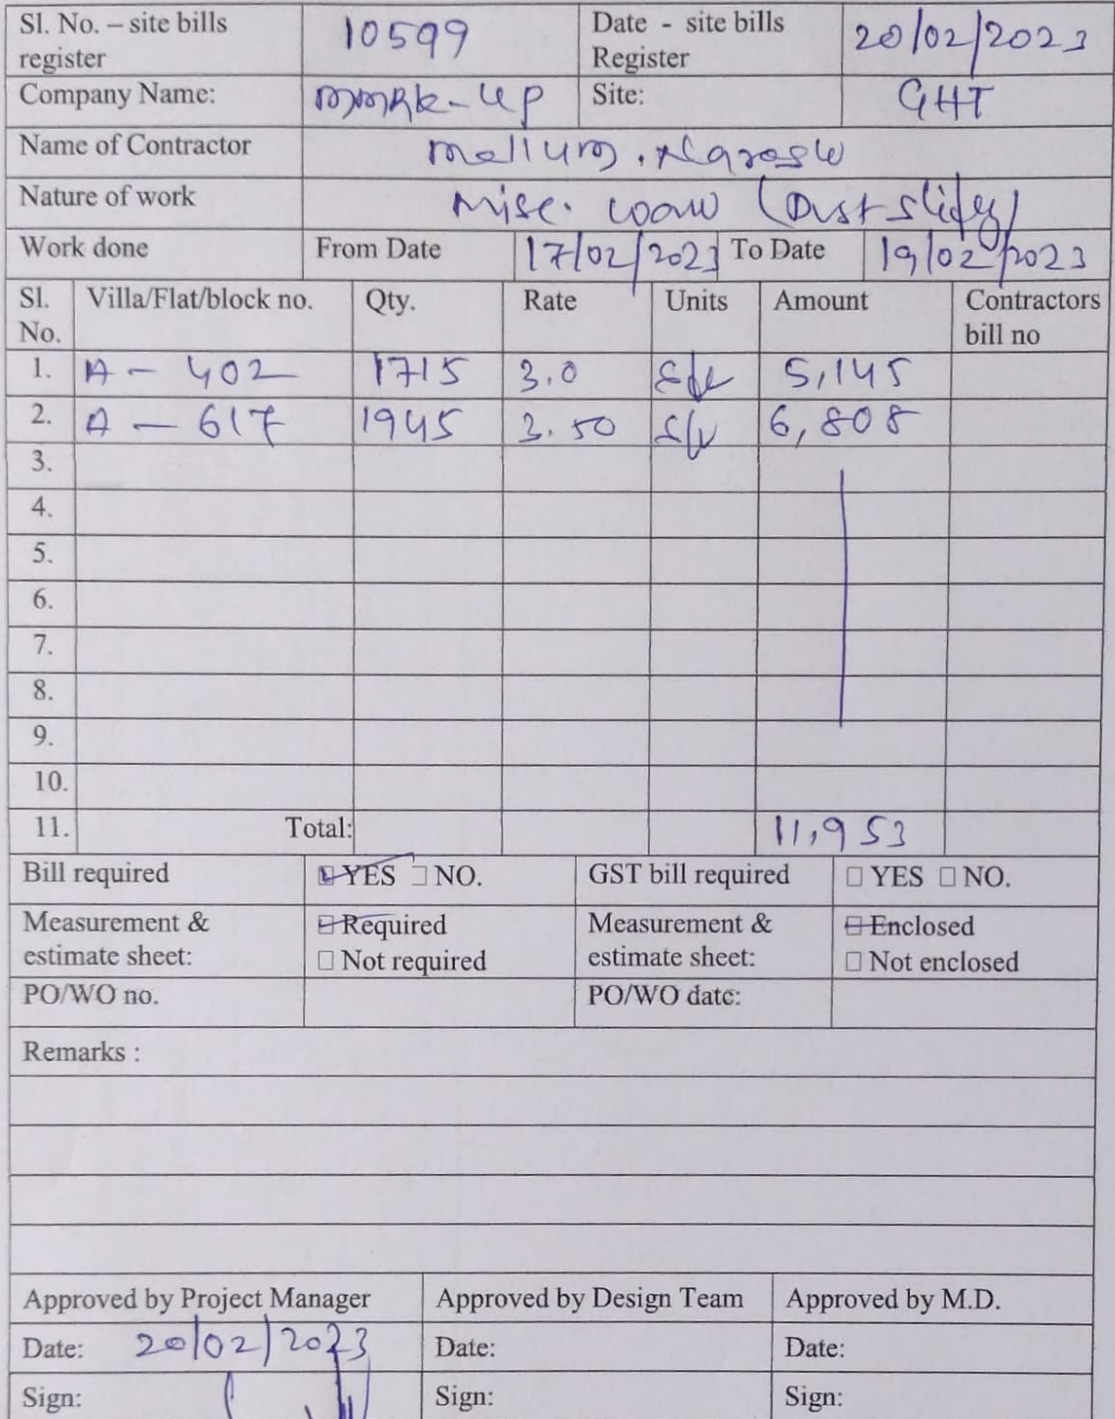 Sl. No. – site bills register 10599 Date - site bills Register 20/02/2023
Company Name: Site: GHT
Name of Contractor
Nature of work Misc. (Dust
Work done From Date 17/02/2023 To Date 19/02/2023
Sl. No. Villa/Flat/block no. Qty. Rate Units Amount Contractors bill no
1. A - 402 1715 3.0 5,145
2. A - 617 1945 3.50 6,808
3.
4.
5.
6.
7.
8.
9.
10.
11. Total: 11,953
Bill required YES NO. GST bill required YES NO.
Measurement & estimate sheet: Required Not required Measurement & estimate sheet: Enclosed Not enclosed
PO/WO no. PO/WO date:
Remarks :
Approved by Project Manager Approved by Design Team Approved by M.D.
Date: 20/02/2023 Date: Date:
Sign: Sign: Sign: